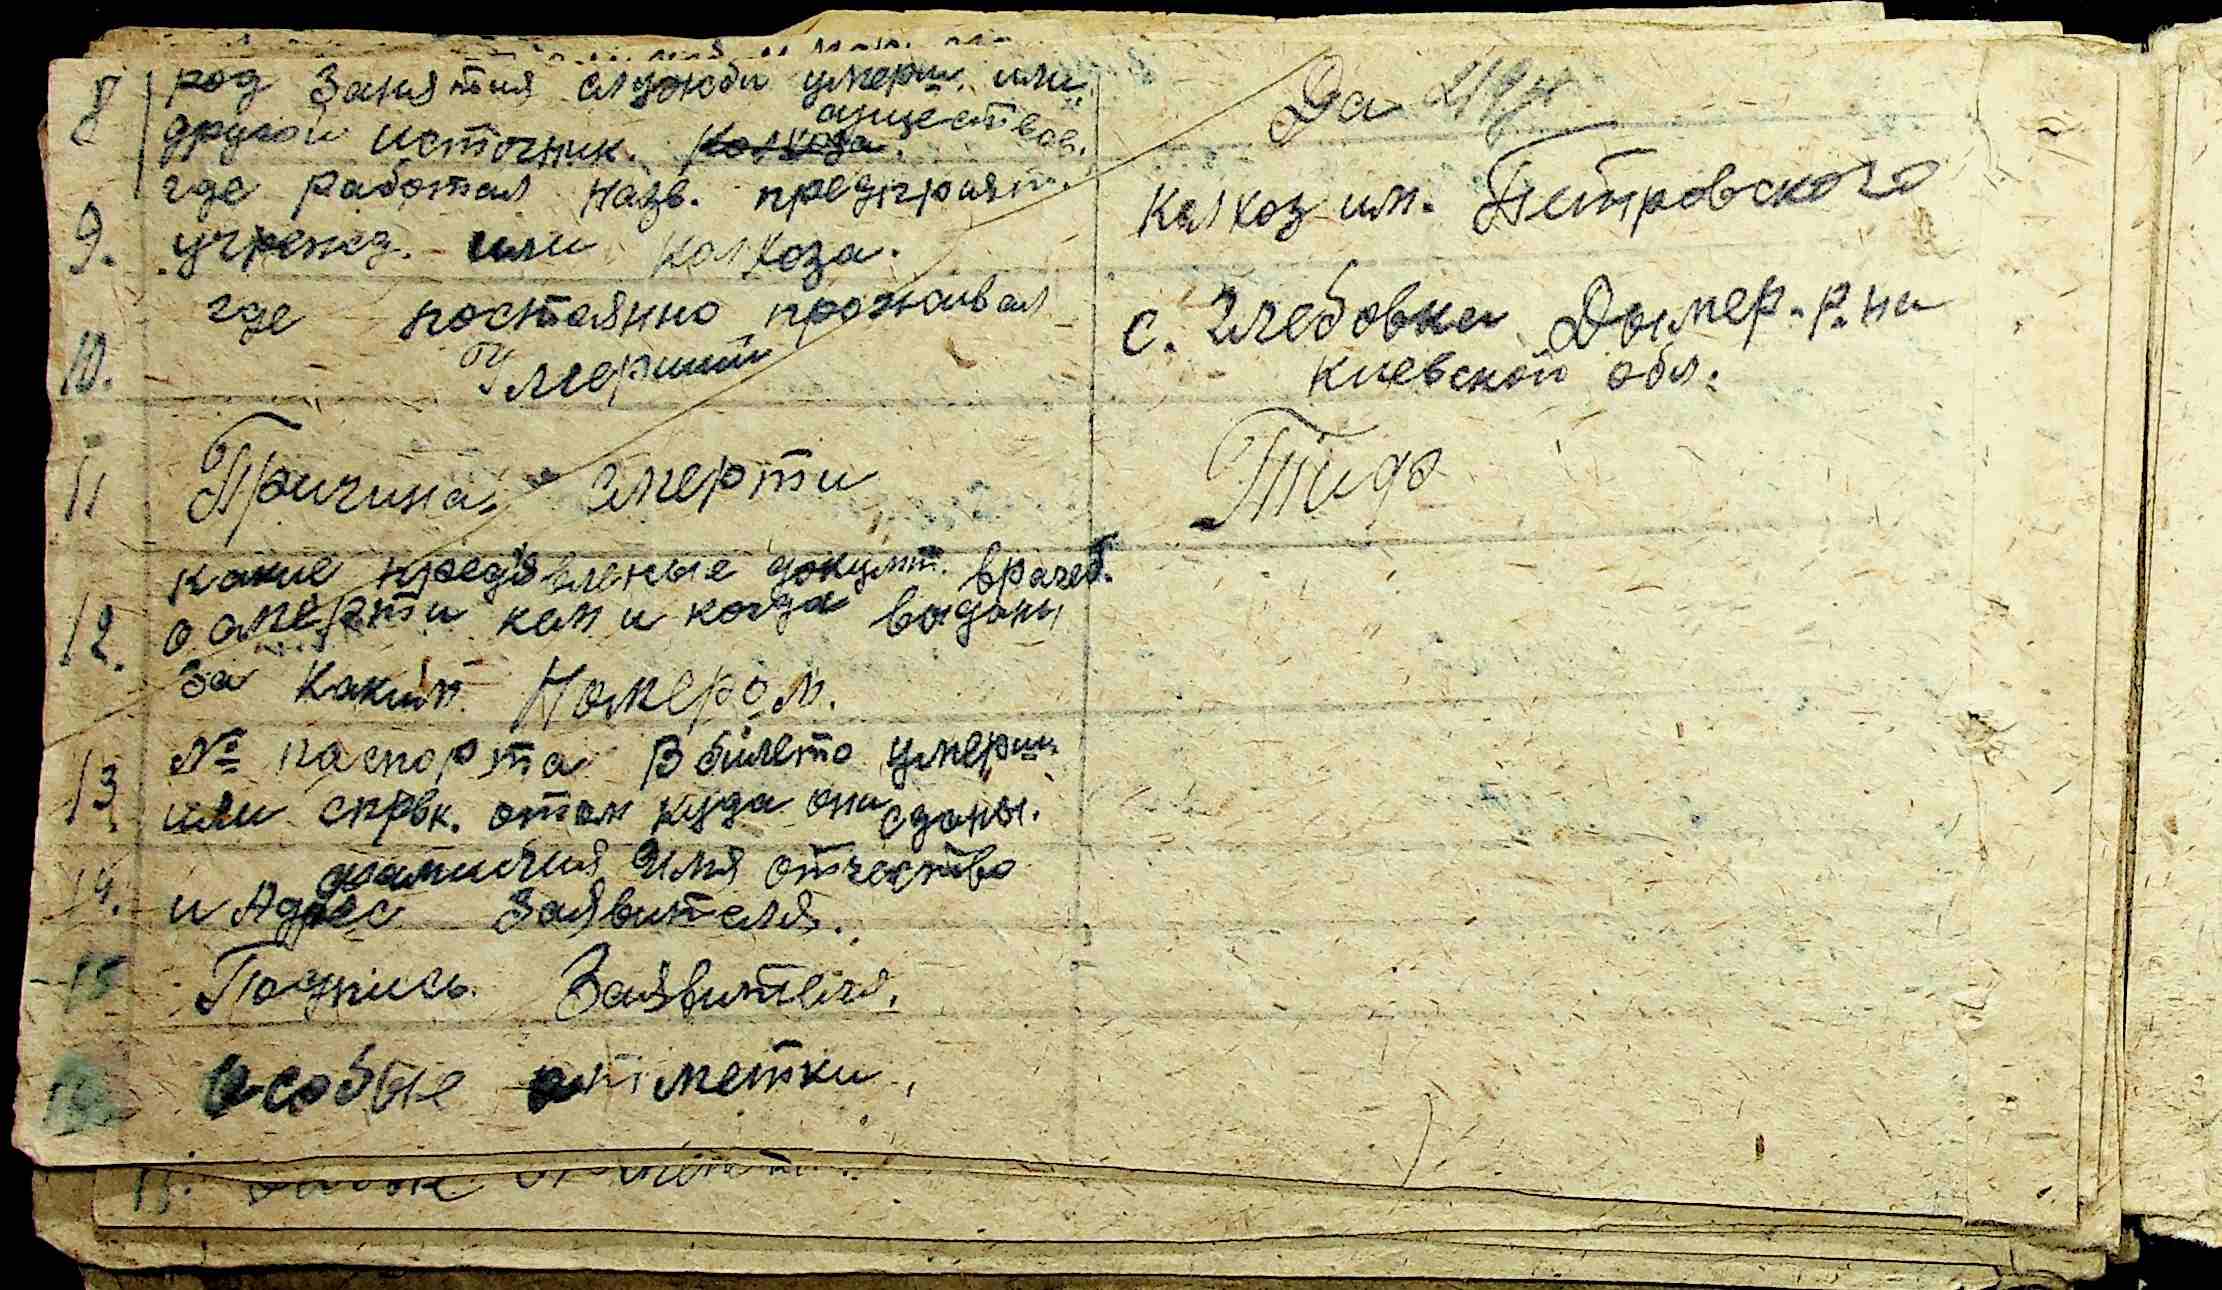 8 род занятия службы умерш. или
другой источник. Колхоза. существов.
Да
9. где работал назв. предприят.
учрежд. или колхоза.
Колхоз им. Петровского
10. где постоянно проживал
Умерший
с. Глебовка Дымер. р-на
Киевской обл.
11 Причина смерти
Тиф
12. какие предъявленые докумт. врачеб.
о смерти кем и когда выданы
за каким Номером.
13. № паспорта В билето умерш.
или спрвк. отом куда они сданы.
14. фамилия Имя отчество
и Адрес Заявителя.
15 Подпись Заявителя.
16 особые отметки.